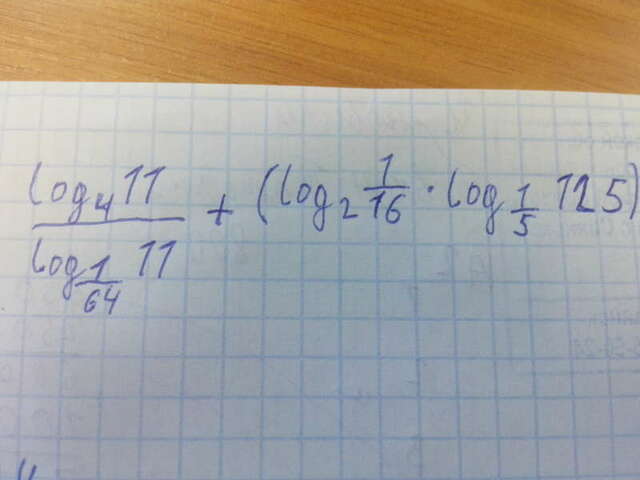 log₄11 / log_{1/64} 11 + (log₂ 1/16 · log_{1/5} 125)